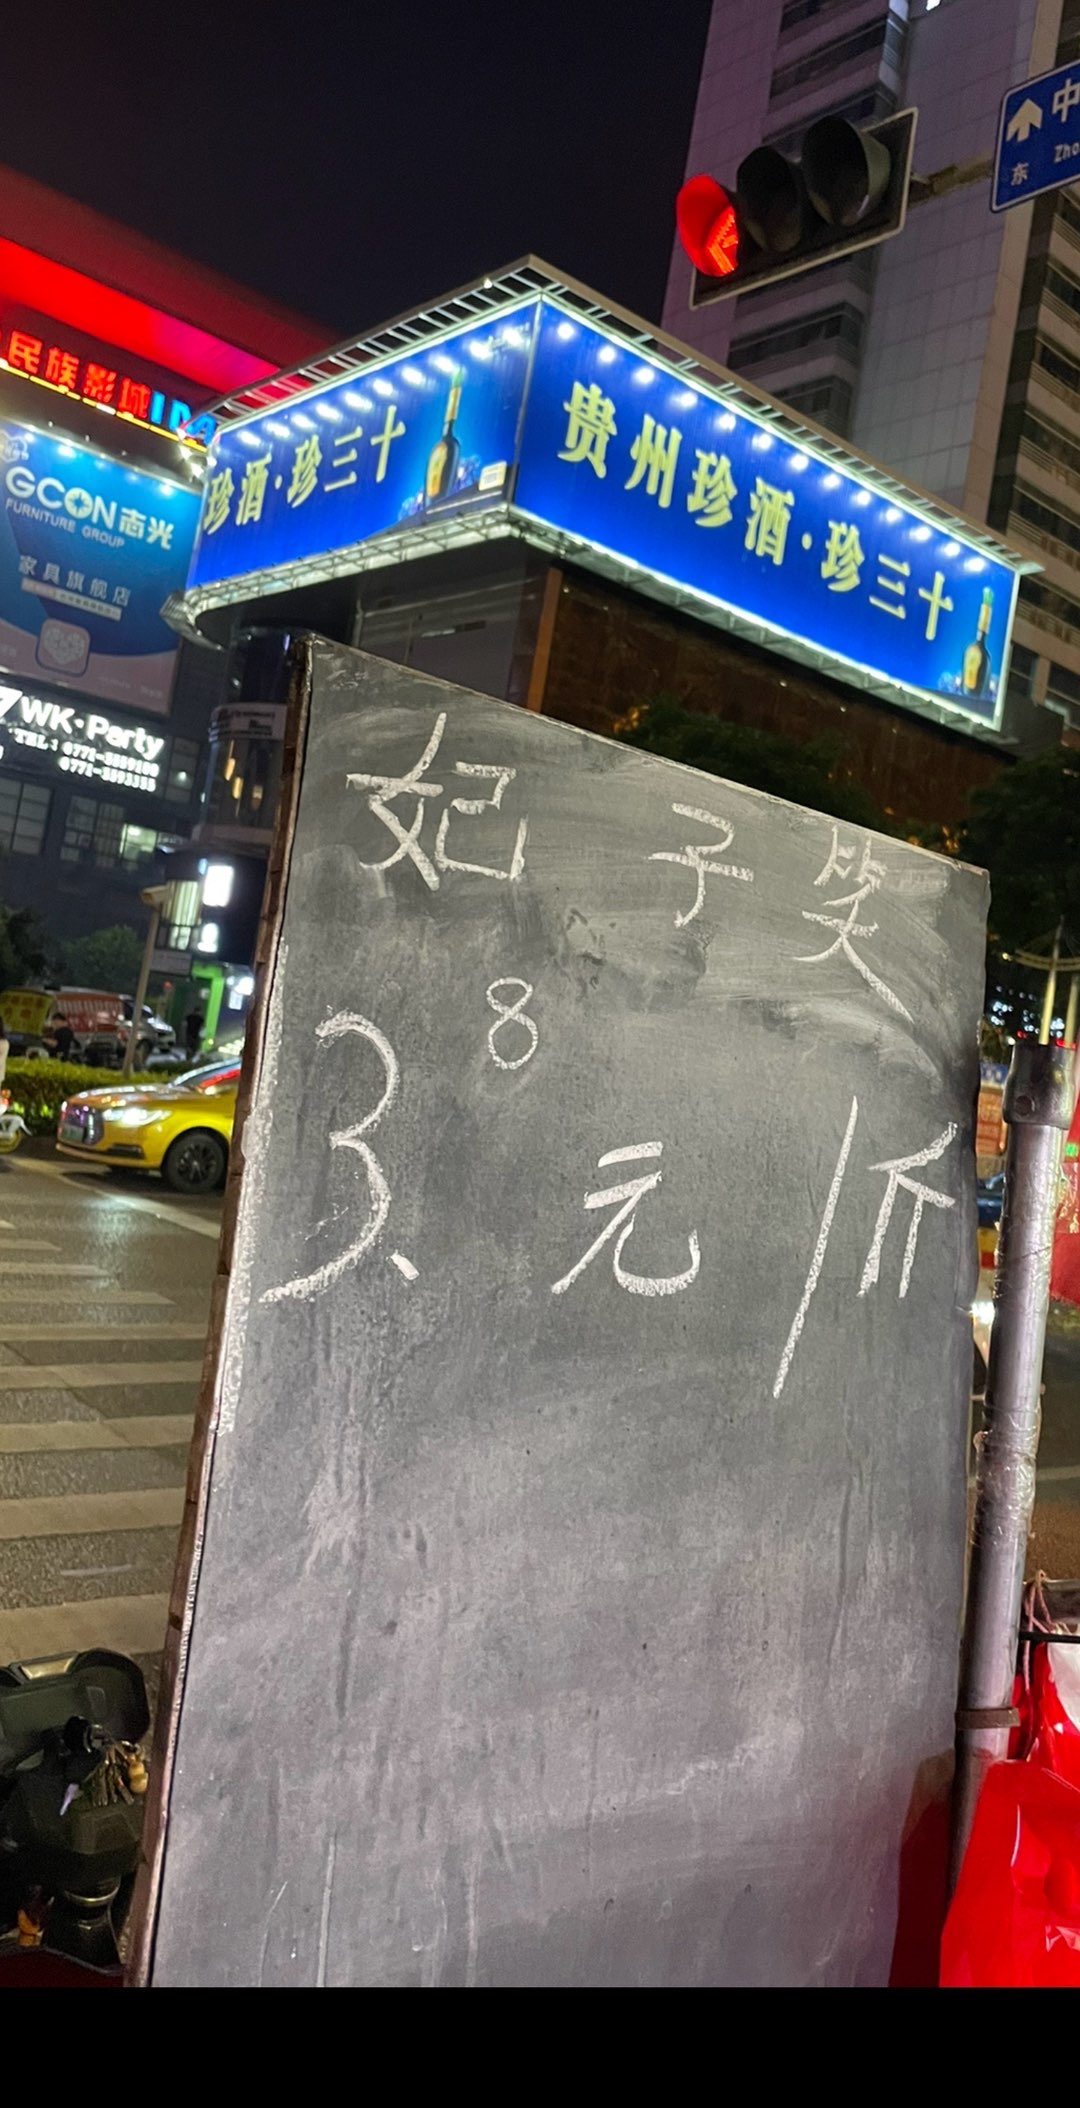 中
东
Zho
民族影城
GCON志光
FURNITURE GROUP
家具旗舰店
珍酒·珍三十
贵州珍酒·珍三十
WK·Party
TEL:0771-5889100
0771-5893355
妃子笑
3.8元/斤